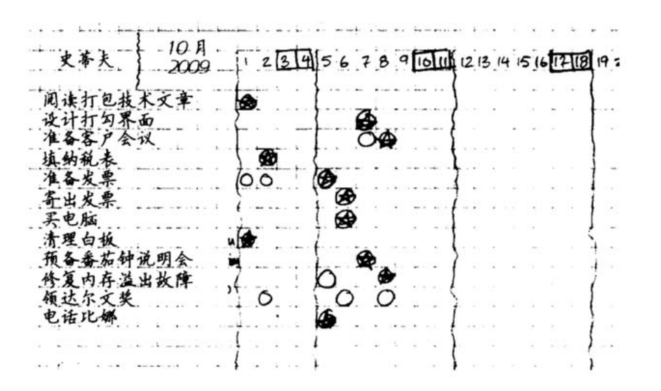 史蒂夫
10月
2009
1 2 3 4 5 6 7 8 9 10 11 12 13 14 15 16 17 18 19
阅读打包技术文章
设计打勾界面
准备客户会议
填纳税表
准备发票
寄出发票
买电脑
清理白板
预备番茄钟说明会
修复内存溢出故障
领达尔文奖
电话比娜